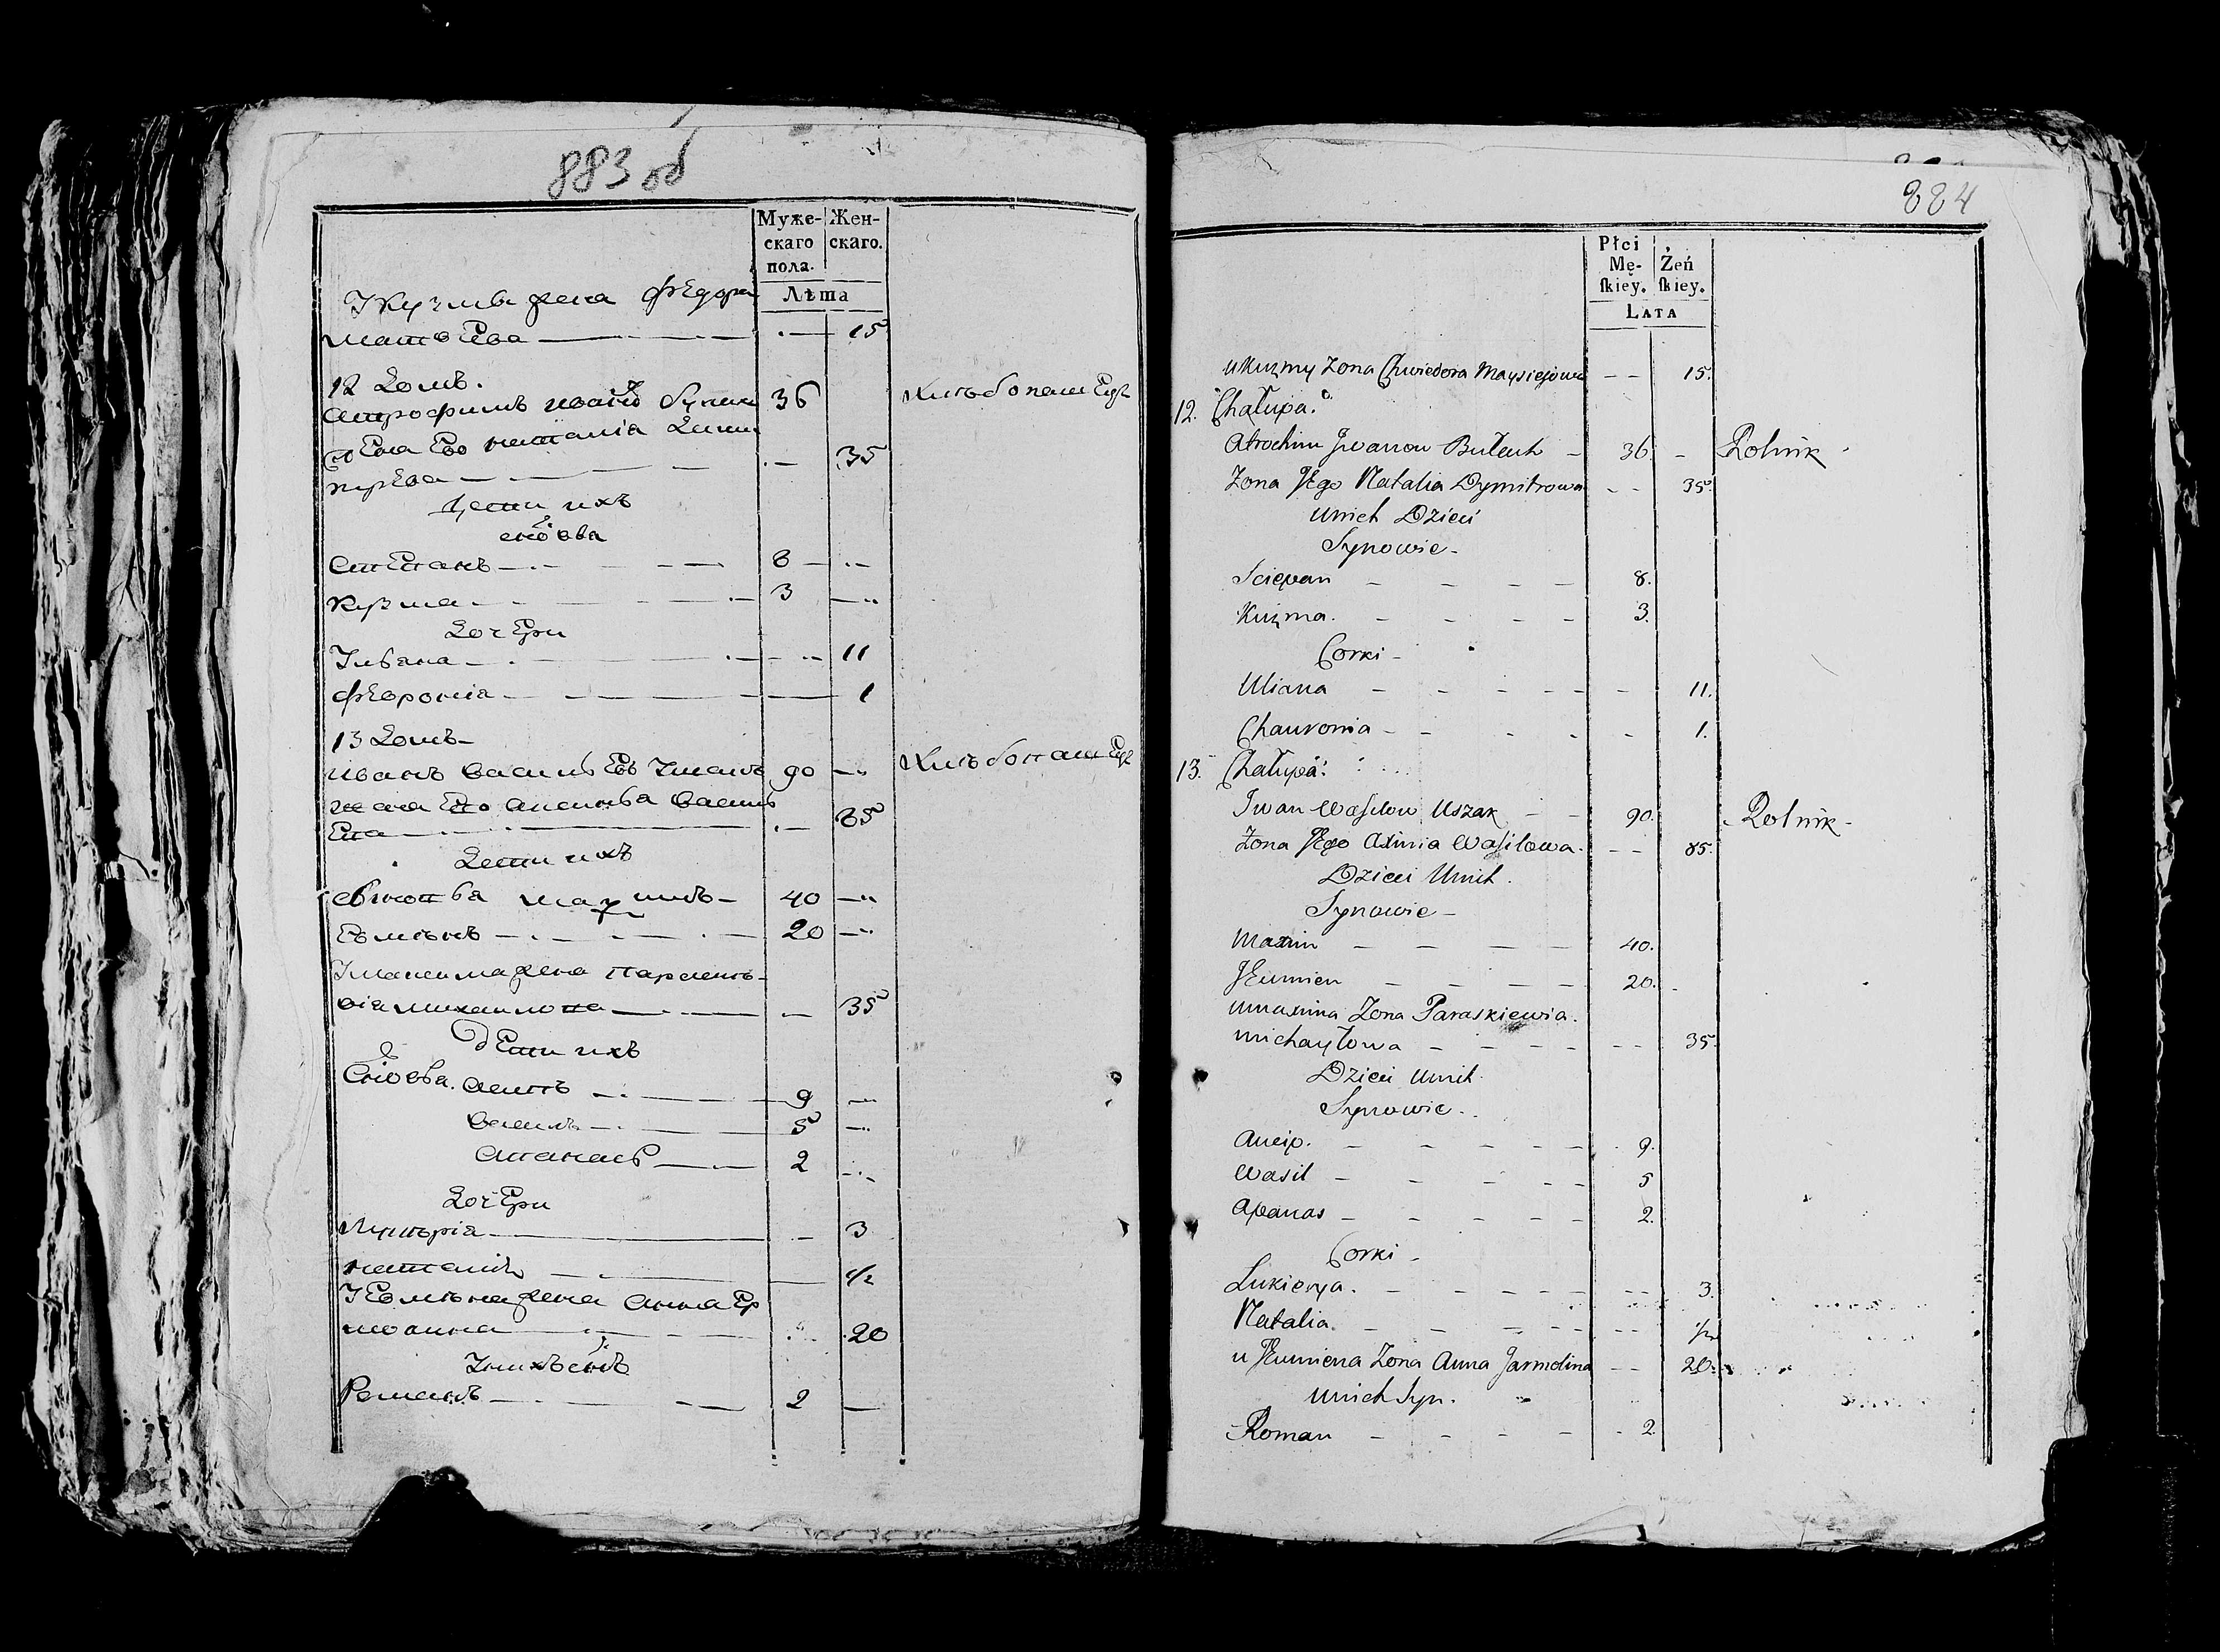 883 об
Муже- Жен-
скаго скаго.
пола.
Лѣта
Укузмы жена Федора
15
12 Домъ.
36 Хлѣбопашецъ
жена Его наталіа
35
дети ихъ
снова
Степанъ 8
Кузма 3
Дочери
Ульяна 11
Февронія 1
13 Домъ
иванъ васильевъ Ушакъ 90 Хлѣбопашецъ
жена Его аксинья василь
Ева 85
Дети ихъ
сыновья максимъ 40
Евменъ 20
Умаксима жена параскев-
віа михаилова 35
дети ихъ
Сновья. Осипъ 9
василь 5
Апанасъ 2
Дочери
Лукерія 3
наталія 1/2
У Евмена жена Анна Ер
молина 20
Унихъ снъ
Романъ 2
884
Płci
Mę- Żeń
skiey. skiey.
LATA
u Kuzmy Zona Chwiedora Maysiejowa - - 15.
12. Chałupa.
Atrochim Jwanow Butenk - 36. - Rolnik
Zona Jego Natalia Dymitrowa - - 35.
Unich Dzieci
Synowie -
Sciepan - - - - 8.
Kuzma. - - - - 3.
Corki -
Uliana - - - - - - 11.
Chauronia - - - - - 1.
13. Chałupa.
Iwan Wasilow Uszak - - 90. - Rolnik -
Zona Jego Axinia Wasilowa. - - 85.
Dzieci Unich.
Synowie -
Maxim - - - - 40.
JEumien - - - - 20.
u Maxima Zona Paraskiewia.
Michayłowa - - - - - - 35.
Dzieci Unich.
Synowie.
Aucip. - - - - - 9.
Wasil - - - - - 5
Apanas - - - - - 2.
Corki -
Lukierya. - - - - - - - 3.
Natalia. - - - - - - - 1/2
u JEumiena Zona Anna Jarmolina - - 20.
Unich Syn.
Roman - - - - - - 2.